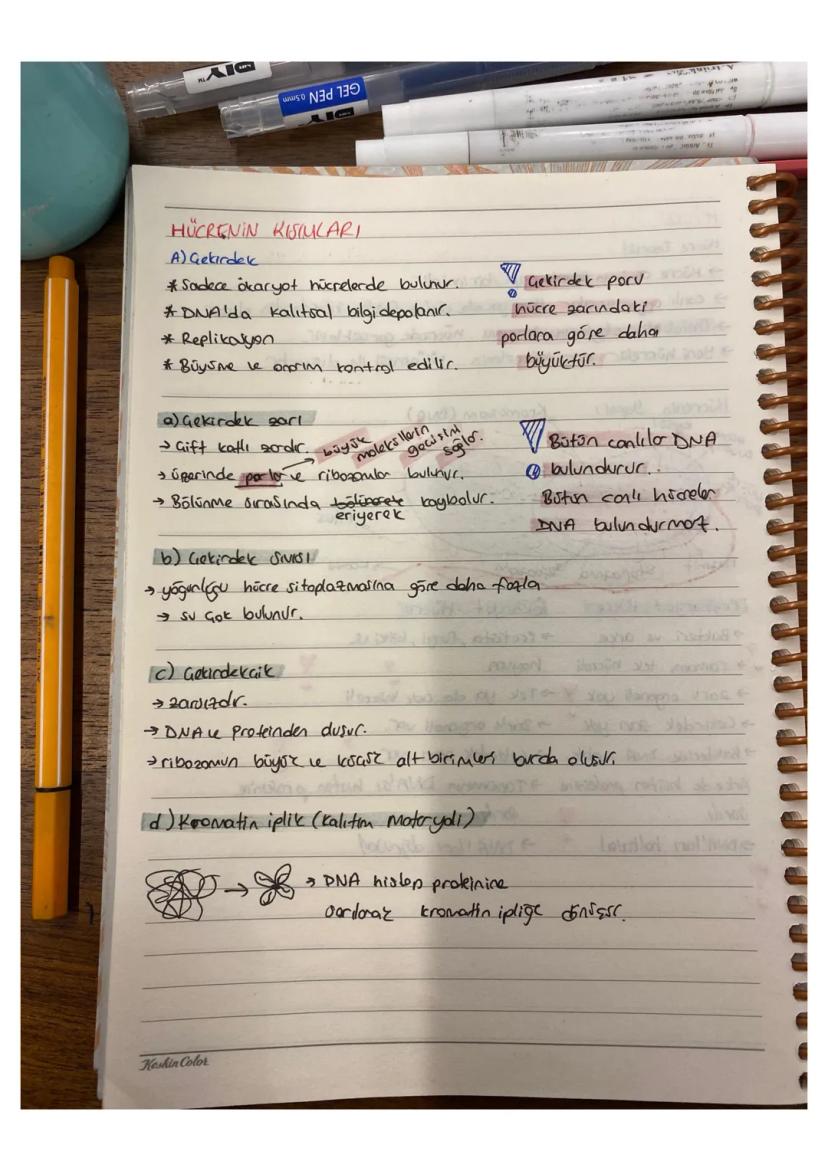 DIY™
GEL PEN 0.5mm
DIY
HÜCRENİN KISIMLARI
A) Çekirdek
* Sadece ökaryot hücrelerde bulunur.
* DNA'da kalıtsal bilgi depolanır.
* Replikasyon
* Büyüme ve onarım kontrol edilir.
Çekirdek poru
hücre zarındaki
porlara göre daha
büyüktür.
a) Çekirdek zarı
→ Çift katlı zardır.
büyük moleküllerin geçişini sağlar.
→ üzerinde porlar ve ribozomlar bulunur.
→ Bölünme sırasında bölünerek kaybolur.
eriyerek
Bütün canlılar DNA
bulundurur.
Bütün canlı hücreler
DNA bulundurmaz.
b) Çekirdek sıvısı
→ yoğunluğu hücre sitoplazmasına göre daha fazla
→ su çok bulunur.
c) Çekirdekçik
→ zarsızdır.
→ DNA ve proteinden oluşur.
→ ribozomun büyük ve küçük alt birimleri burda oluşur.
d) Kromatin iplik (Kalıtım Materyali)
→ → DNA histon proteinine
sarılarak kromatin ipliğe dönüşür.
KeskinColor